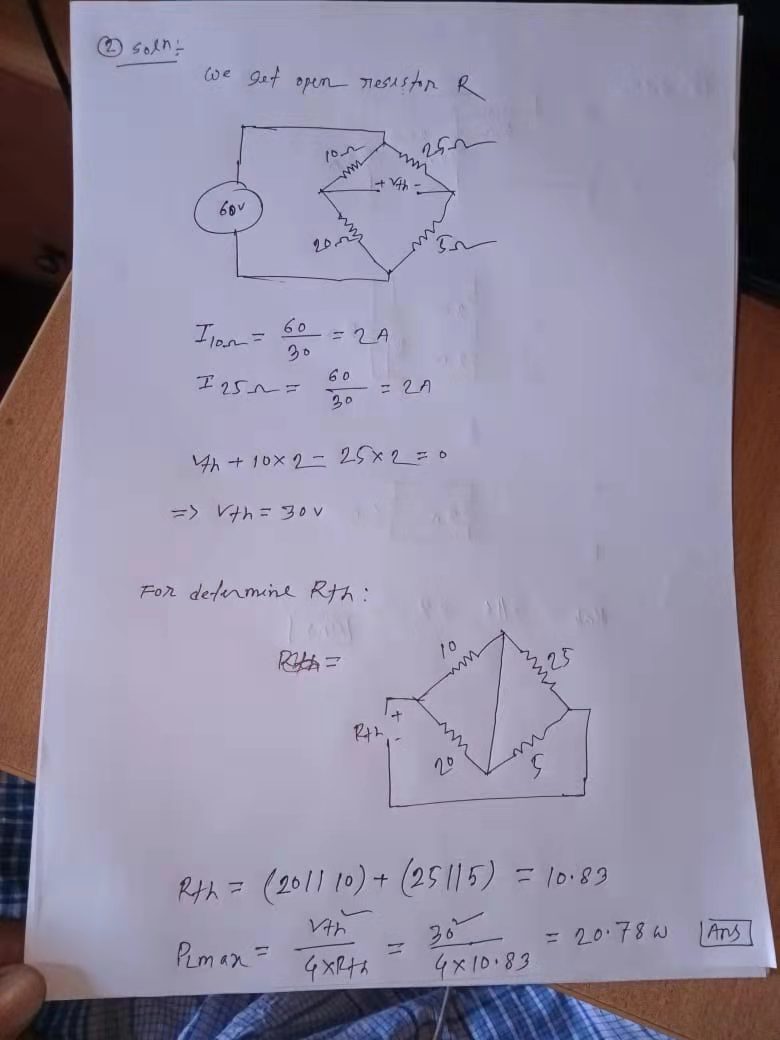 ② soln:-
We get open resistor R
10Ω 25Ω
+ Vth -
60V
20Ω 5Ω
I10Ω = 60/30 = 2A
I 25Ω = 60/30 = 2A
Vth + 10×2 - 25×2 = 0
=> Vth = 30V
For determine Rth:
=
10 25
+
Rth
-
20 5
Rth = (20||10) + (25||5) = 10.83
PLmax = Vth²/4×Rth = 30²/4×10.83 = 20.78 W Ans